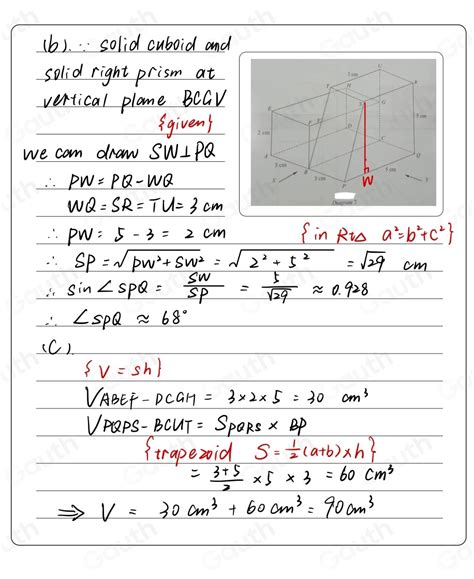 (b). ∵ solid cuboid and
solid right prism at
vertical plane BCGV
{given}
we can draw SW⊥PQ
∴ PW = PQ - WQ
WQ = SR = TU = 3 cm
∴ PW = 5 - 3 = 2 cm {in Rt△ a²=b²+c²}
∴ SP = √PW²+SW² = √2²+5² = √29 cm
∴ sin∠SPQ = SW/SP = 5/√29 ≈ 0.928
∴ ∠SPQ ≈ 68°
(C).
{V = sh}
VABEF-DCGH = 3×2×5 = 30 cm³
VPQRS-BCUT = SPQRS × BP
{trapezoid S = 1/2(a+b)×h}
= 3+5/2 × 5 × 3 = 60 cm³
⇒ V = 30 cm³ + 60 cm³ = 90 cm³
3 cm
U
T
H
R
E
S
G
5 cm
F
2 cm
D
A
Q
3 cm
B
5 cm
5 cm
X
P
W
Y
Gauth